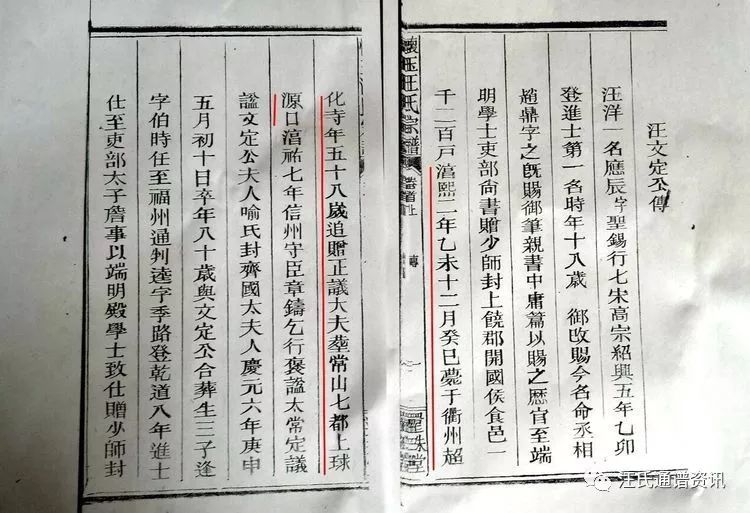 汪文定公傳
汪洋一名應辰字聖錫行七宋高宗紹興五年乙卯
登進士第一名時年十八歲 御改賜今名命丞相
趙鼎字之旣賜御筆親書中庸篇以賜之歷官至端
明學士吏部尙書贈少師封上饒郡開國侯食邑一
千二百戸湻熙二年乙未十二月癸巳薨于衢州超
懷玉汪氏宗譜
卷首上
傳
聖珠堂
化寺年五十八歲追贈正議大夫塟常山七都上球
源口湻祐七年信州守臣章鑄乞行褒謚太常定議
謚文定公夫人喻氏封齊國太夫人慶元六年庚申
五月初十日卒年八十歲與文定公合葬生三子逢
字伯時任至福州通判逵字季路登乾道八年進士
仕至吏部太子詹事以端明殿學士致仕贈少師封
汪氏通谱资讯